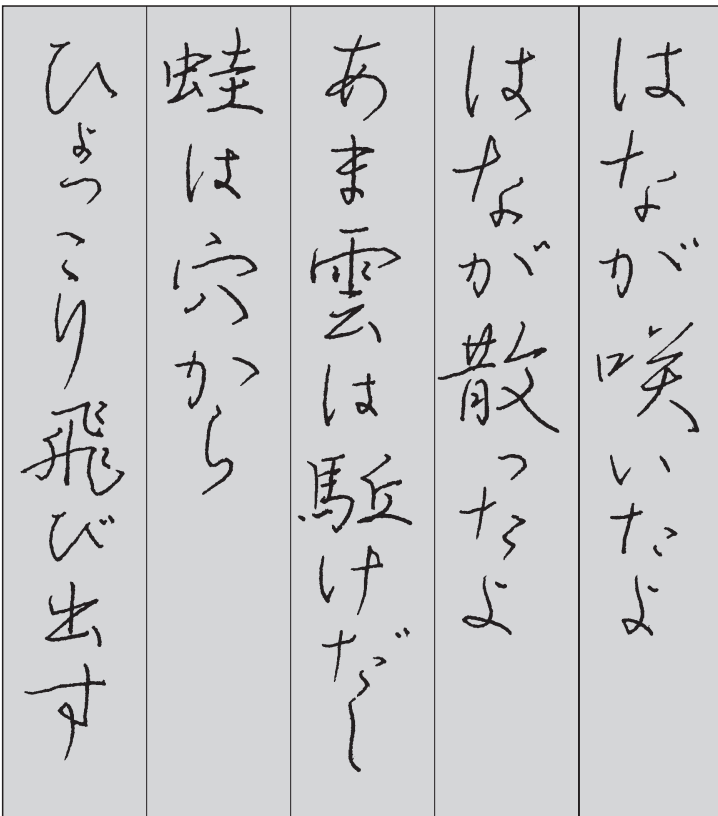 はなが咲いたよ
はなが散ったよ
あま雲は駈けだし
蛙は穴から
ひょっこり飛び出す